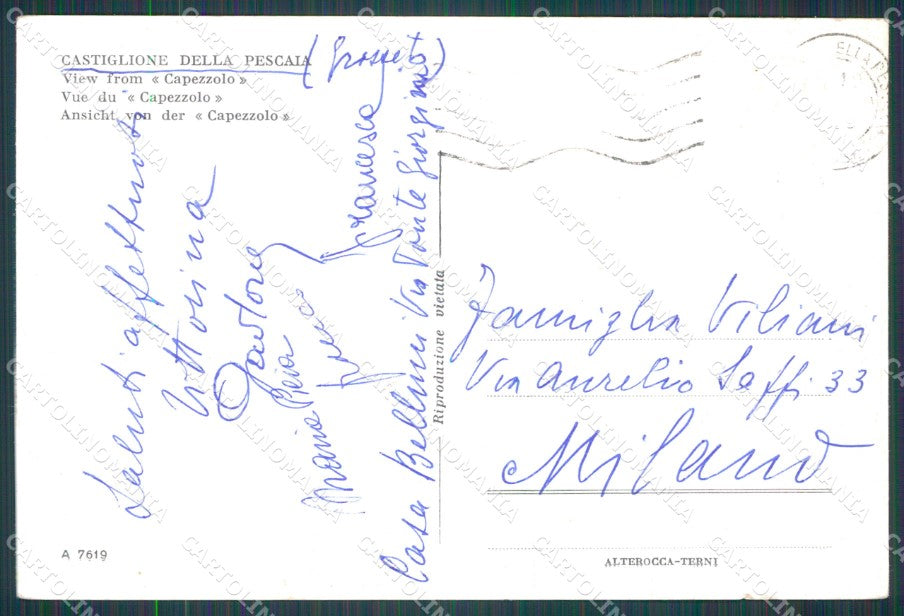 CASTIGLIONE DELLA PESCAIA (Grosseto)
View from « Capezzolo »
Vue du « Capezzolo »
Ansicht von der « Capezzolo »
Saluti affettuosi
Vittorina
Maria Pia
Francesca
Casa Bellini Via Ponte Giorgini
Riproduzione vietata
Famiglia Viliani
Via Aurelio Saffi 33
Milano
A 7619
ALTEROCCA-TERNI
CARTOLINOMANIA